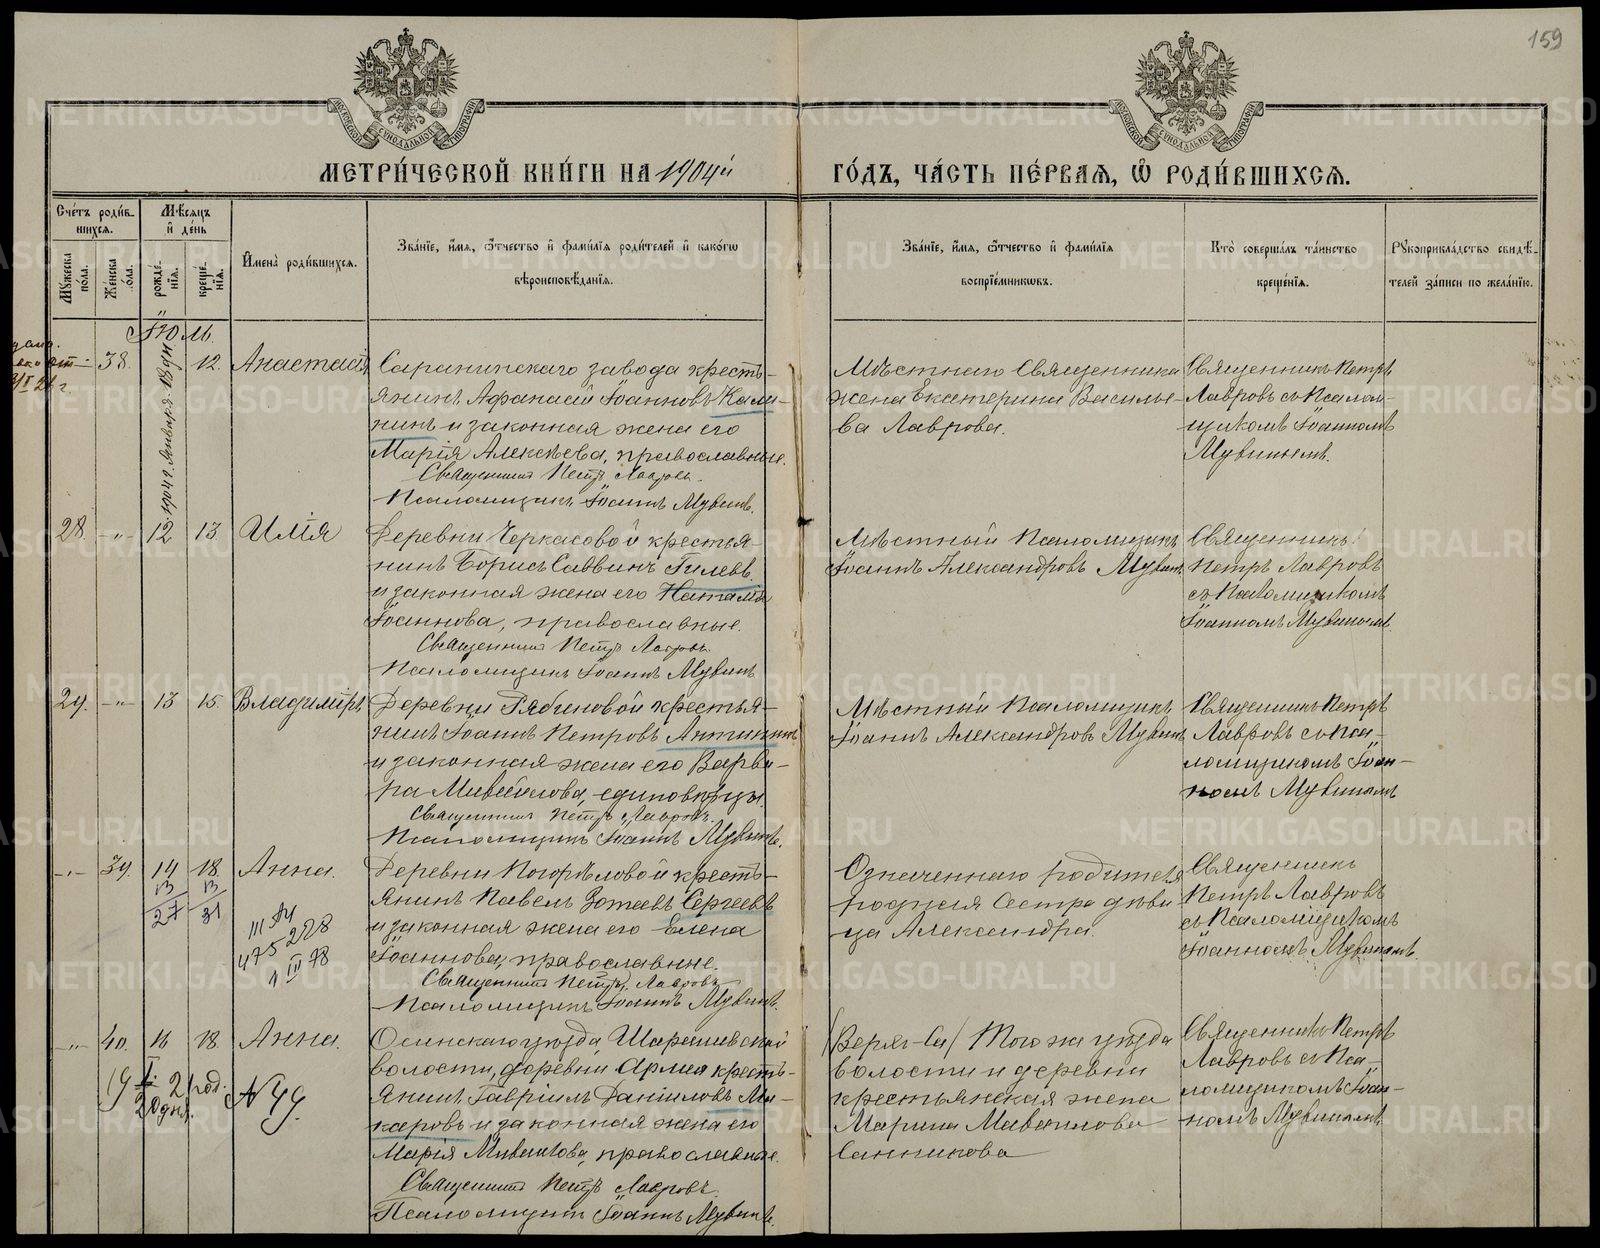 159
МОСКОВСКОЙ СѴНОДАЛЬНОЙ ТИПОГРАФІИ
МОСКОВСКОЙ СѴНОДАЛЬНОЙ ТИПОГРАФІИ
МЕТРИ́ЧЕСКОЙ КНИ́ГИ НА 1904й ГО́ДЪ, ЧА́СТЬ ПЕ́РВАѦ, Ѽ РОДИ́ВШИХСѦ.
Сче́тъ роди́в-
шихсѧ.
Мѣ́сѧцъ
и҆ де́нь
Мꙋ́жеска по́ла.
Же́нска по́ла.
рожде́-
нїѧ.
креще́-
нїѧ.
И҆мена̀ роди́вшихсѧ.
Зва́нїе, и҆́мѧ, ѻ҆́тчество и҆ фами́лїѧ роди́телей и҆ како́гѡ
вѣроисповѣ́данїѧ.
Зва́нїе, и҆́мѧ, ѻ҆́тчество и҆ фами́лїѧ
воспрїе́мникѡвъ.
Кто̀ соверша́лъ та́инство
креще́нїѧ.
Рꙋкоприкла́дство свидѣ́-
телей за́писи по жела́нїю.
Іюль.
38.
1904 г. Января 18 дн
12.
Анастасія
Саранинскаго завода кресть-
янинъ Афанасій Іоанновъ Кали-
нинъ и законная жена его
Марія Алексѣева, православные.
Священникъ Петръ Лавровъ.
Псаломщикъ Іоаннъ Мувинъ.
Мѣстнаго Священника
жена Екатерина Василье-
ва Лаврова.
Священникъ Петръ
Лавровъ съ Псалом-
щикомъ Іоанномъ
Мувинымъ.
28. -"- 12 13. Илія
Деревни Черкасовой крестья-
нинъ Борисъ Саввинъ Гилевъ
и законная жена его Наталія
Іоаннова, православные.
Священникъ Петръ Лавровъ.
Псаломщикъ Іоаннъ Мувинъ
Мѣстный Псаломщикъ
Іоаннъ Александровъ Мувинъ
Священникъ
Петръ Лавровъ
съ Псаломщикомъ
Іоанномъ Мувинымъ.
29. -"- 13 15. Владиміръ
Деревни Рябиновой крестья-
нинъ Іоаннъ Петровъ Антипинъ
и законная жена его Варва-
ра Михайлова, единовѣрцы.
Священникъ Петръ Лавровъ.
Псаломщикъ Іоаннъ Мувинъ.
Мѣстный Псаломщикъ
Іоаннъ Александровъ Мувинъ
Священникъ Петръ
Лавровъ съ Пса-
ломщикомъ Іоан-
номъ Мувинымъ
-"- 39. 14 18. Анна.
13 13
27 31
III АИ
475228
1 III 78
Деревни Погорѣловой кресть-
янинъ Павелъ Зотеевъ Сергеевъ
и законная жена его Елена
Іоаннова, православные.
Священникъ Петръ Лавровъ
Псаломщикъ Іоаннъ Мувинъ.
Означеннаго родителя
родная Сестра дѣви-
ца Александра
Священникъ
Петръ Лавровъ
съ Псаломщикомъ
Іоанномъ Мувинымъ.
-"- 40. 16 18. Анна.
19 I 21 год.
20 дня.
№ 49.
Осинскаго уѣзда
волости, деревни Армея кресть-
янинъ Гавріилъ Даніиловъ Ма-
каровъ и законная жена его
Марія, православные.
Священникъ Петръ Лавровъ.
Псаломщикъ Іоаннъ Мувинъ.
Того же уѣзда
волости и деревни
крестьянская жена
Марина
Санникова
Священникъ Петръ
Лавровъ съ Пса-
ломщикомъ Іоан-
номъ Мувинымъ.
METRIKI.GASO-URAL.RU